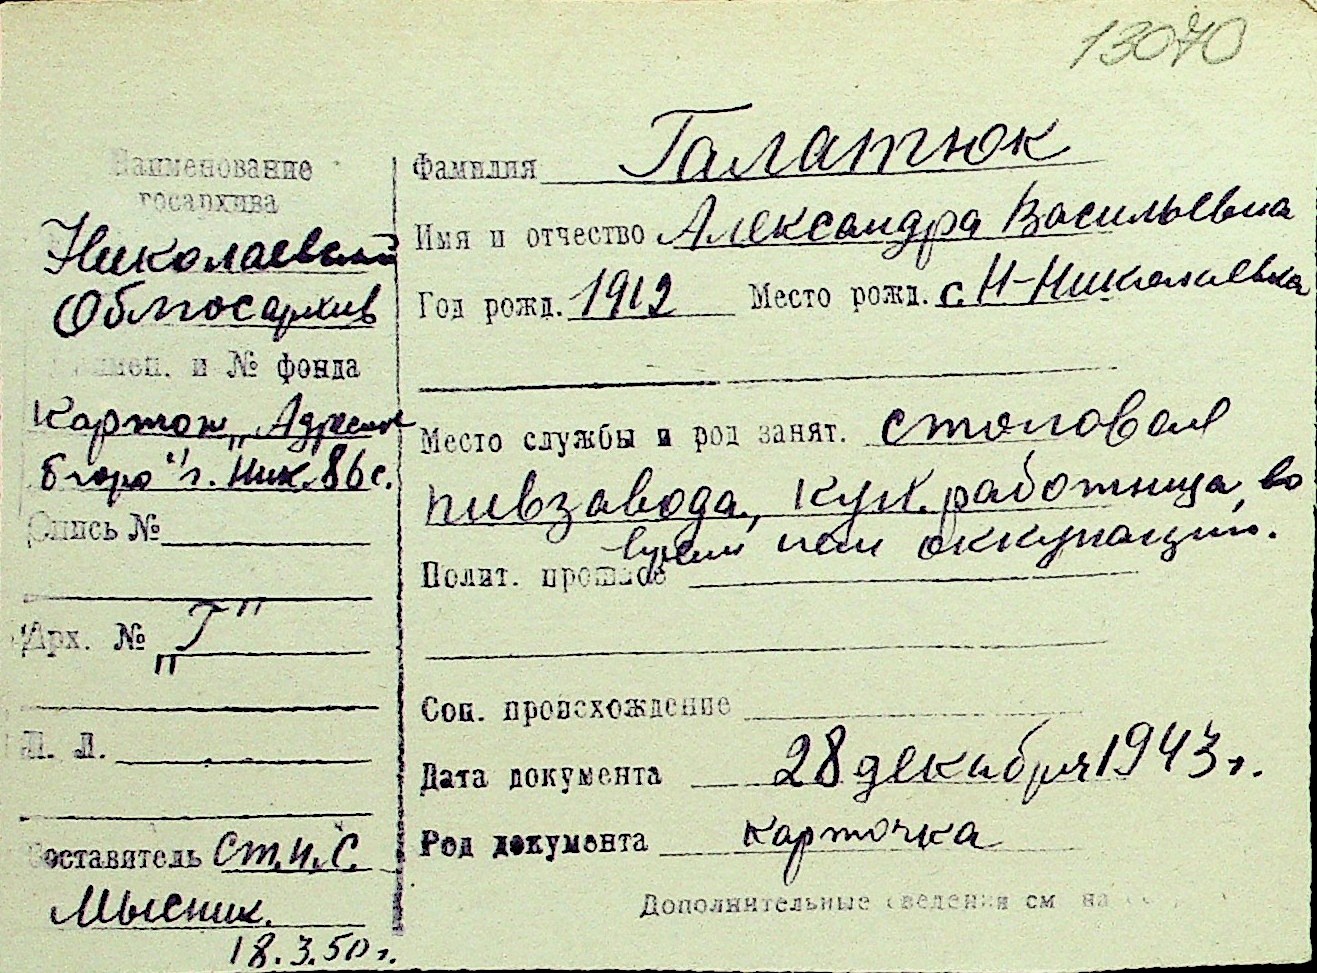 13070
Наименование
госархива
Николаевский
Облгосархив
и № фонда
Картот. „Адресн.
бюро" г. Ник. 86 с.
Опись №
Арх. № „Г"
Л. Л.
Составитель Ст. н. с.
Мысник.
18.3.50 г.
Фамилия Галатюк
Имя и отчество Александра Васильевна
Год рожд. 1912 Место рожд. с. Н-Николаевка
Место службы и род занят. столовая
пивзавода, кух. работница, во
время нем оккупации.
Полит. прошлое
Соц. происхождение
Дата документа 28 декабря 1943 г.
Род документа карточка
Дополнительные сведения см на